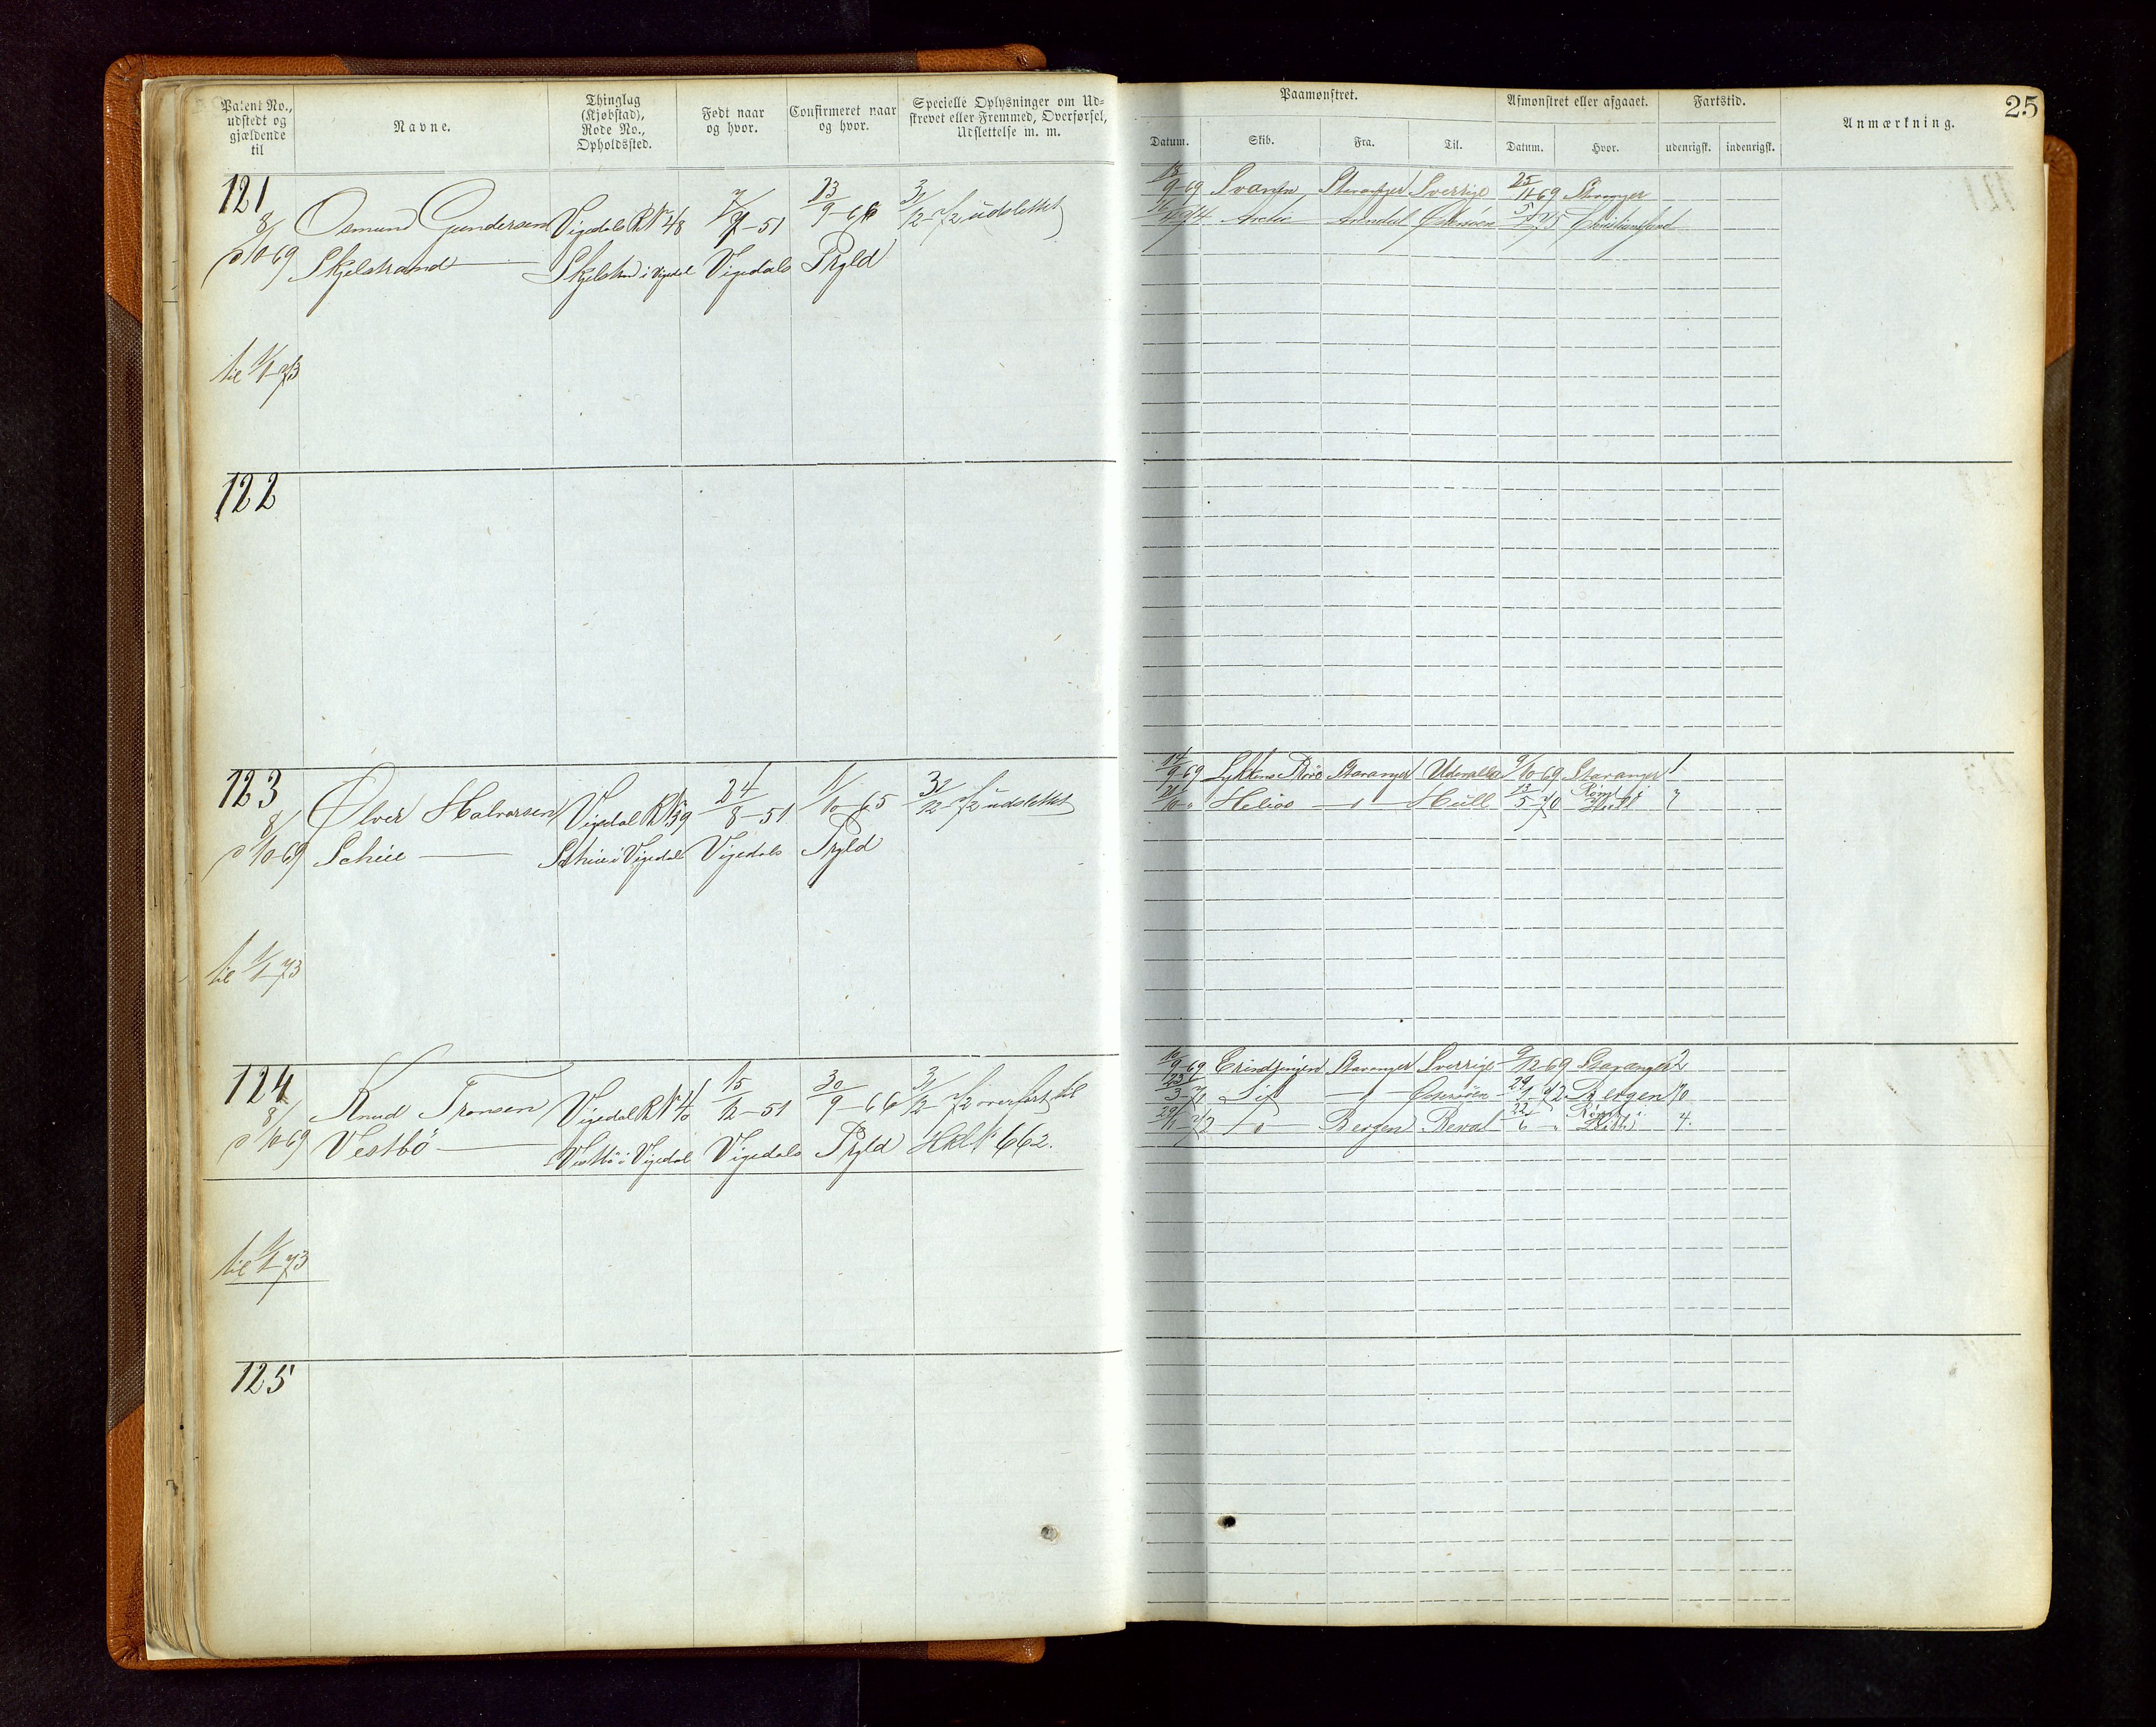 Patent No., udstedt og gjældende til
Navne.
Thinglag (Kjøbstad), Rode No., Opholdssted.
Født naar og hvor.
Confirmeret naar og hvor.
Specielle Oplysninger om Udstrevet eller Fremmed, Overførsel, Udslettelse m. m.
Paamønstret.
Afmønstret eller afgaaet.
Fartstid.
Anmærkning.
25
Datum. Skib. Fra. Til. Datum. Hvor. udenrigsk. indenrigsk.
121
Osmund Gundersen Vigedal R N 48 7/7-51 23/9-66 31/12-72 udslettet
8/10-69 Skjelstrand Skjelstrand i Vigedal Vigedals Prgld
til 1/1-73
18/9-69 Svanen Stavanger Sverrige 25/11-69 Stavanger
Arctic Arendal Østersøen Christianssand
122
123
Ølver Halvorsen Vigedal R N 39 24/8-51 1/10-65 31/12-72 udslettet
8/10-69 Scheie Scheie i Vigedal Vigedals Prgld
til 1/1-73
14/9-69 Lykkens Prøve Stavanger Udevalla 9/10-69 Stavanger 1
21/10 " Helios —"— Hull 13/5-70 Rømt i Hull 7
124
Knud Tronsen Vigedal R N 40 15/12-51 30/9-66 31/12-72 overført til
8/10-69 Vestbö Vestbö i Vigedal Vigedals Prgld Hkl N 662.
til 1/1-73
16/9-69 Erindringen Stavanger Sverrige 9/12-69 Stavanger 2
23/3-70 Sif —"— Østersöen 29/1-72 Bergen 10
29/1-72 do Bergen Reval 22/6 " Rømt i 4
125